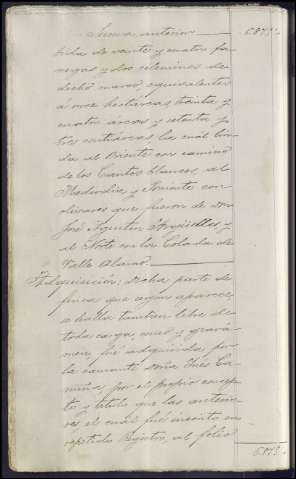 Suma anterior 6873
hila de veinte y cuatro fa
negas y dos celemines de
dicho marco equivalentes
á once hectáreas, treinta y
cuatro áreas y setenta y
tres centiáreas, la cual lin
da al Oriente con camino
de los Cantos blancos, al
Mediodia y Poniente con
olivares que fueron de Don
José Agustin Argüelles, y
al Norte con la Colada de
Valle Alamo
Adquisición: Dicha parte de
finca que segun aparece,
se halla tambien libre de
toda carga, censo y gravá
men, fué adquirida por
la causante Doña Ines Ca
por el propio concep
to y titulo que las anterio
res, el cual fué inscrito en
repetido Registro, al folio
6873